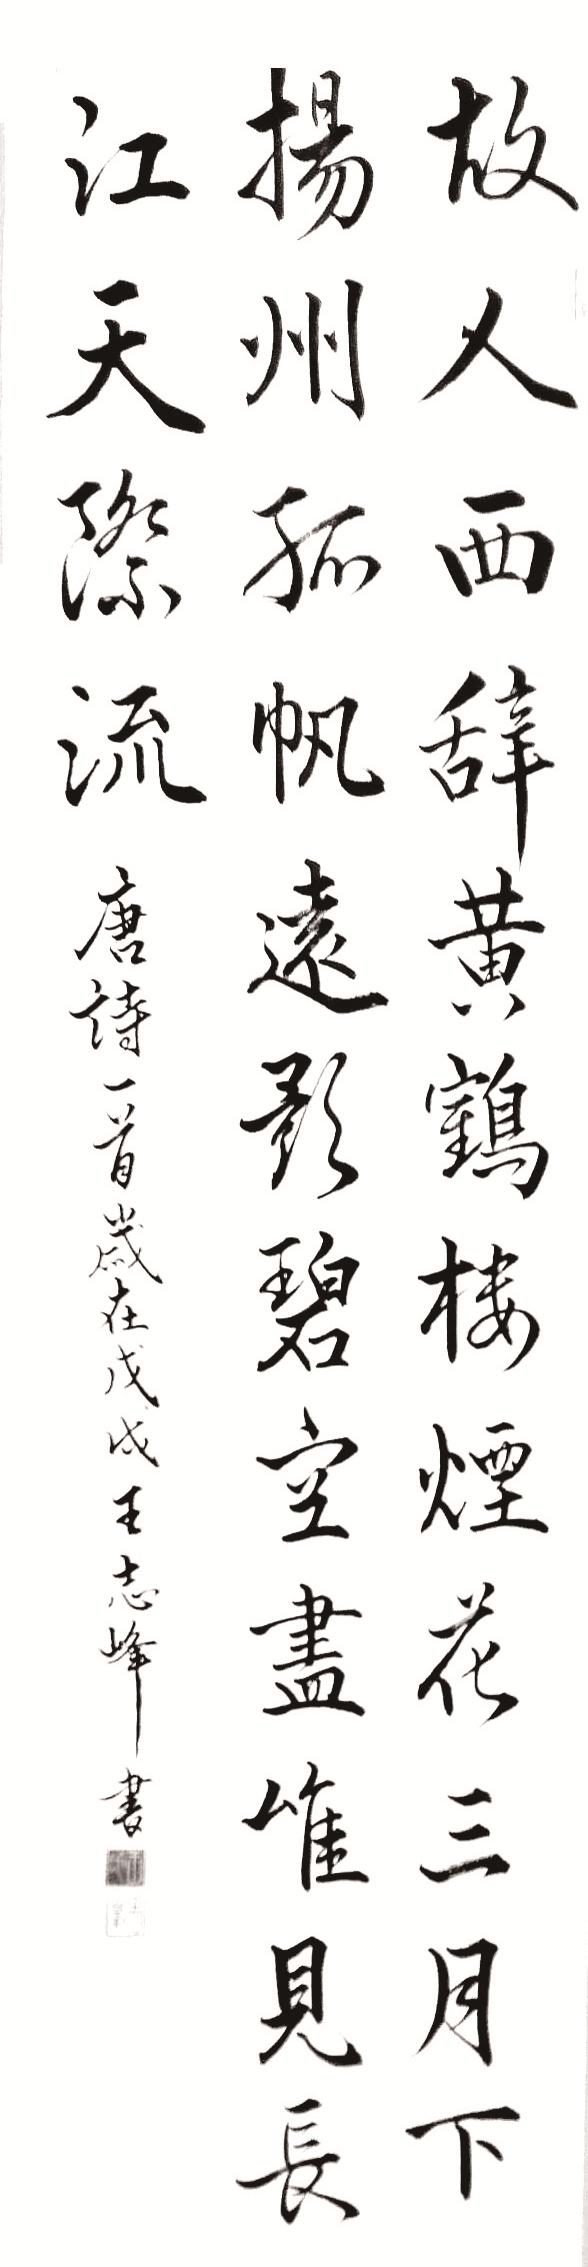 故人西辞黄鶴楼煙花三月下
揚州孤帆遠影碧空盡唯見長
江天際流
唐詩一首歲在戊戌王志峰書